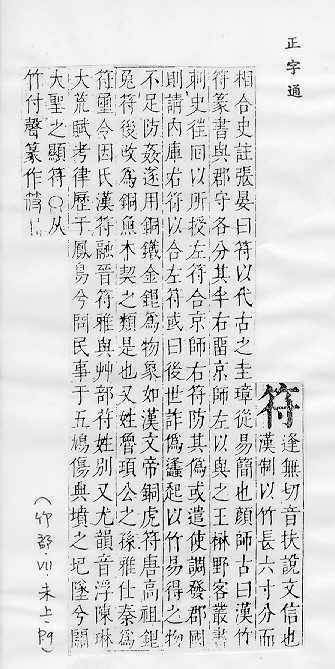 正字通
符
逢無切音扶說文信也
漢制以竹長六寸分而
相合史註張晏曰符以代古之圭璋從易簡也顏師古曰漢竹
符篆書與郡守各分其半右留京師左以與之王楙野客叢書
刺史徃囘以所授左符合京師右符防其僞或遣使調發郡國
則請內庫右符以合左符或曰後世詐僞蠭起以竹易得之物
不足防姦逐用銅鐵金銀爲物象如漢文帝銅虎符唐高祖銀
兎符後改爲銅魚木契之類是也又姓魯頃公之孫雅仕秦爲
符璽令因氏漢符融晉符雅與艸部苻姓別又尤韻音浮陳琳
大荒賦考律歷于鳳鳥兮問民事于五鳩傷典墳之圮墜兮闕
大聖之顯符○从
竹付聲篆作符
(竹部·VII 未上·P9)